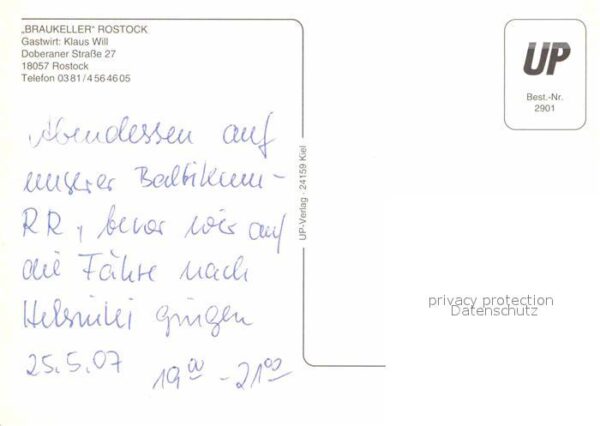 „BRAUKELLER" ROSTOCK
Gastwirt: Klaus Will
Doberaner Straße 27
18057 Rostock
Telefon 03 81 / 4 56 46 05
UP
Best.-Nr.
2901
Abendessen auf
unserer Baltikum-
RR, bevor wir auf
die Fähre nach
Helsinki gingen
25.5.07 19⁰⁰ - 21⁰⁰
UP-Verlag · 24159 Kiel
privacy protection
Datenschutz